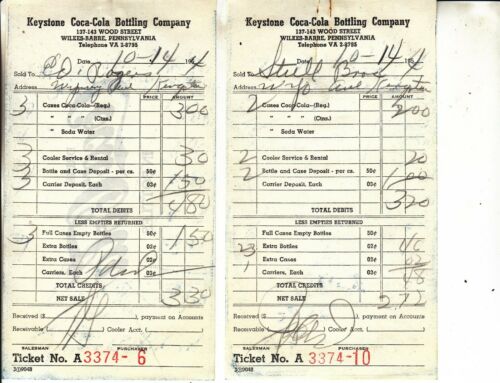 Keystone Coca-Cola Bottling Company
137-143 WOOD STREET
WILKES-BARRE, PENNSYLVANIA
Telephone VA 2-8755
10-14
Sold To Ed. Rogers
Address Wyoming Ave Kingston
PRICE AMOUNT
3 Cases Coca-Cola—(Reg.) 300
" " " (Ctns.)
" " Soda Water
3 Cooler Service & Rental 30
3 Bottle and Case Deposit - per cs. 50¢ 150
Carrier Deposit, Each 03¢
TOTAL DEBITS 480
LESS EMPTIES RETURNED
3 Full Cases Empty Bottles 50¢ 150
Extra Bottles 02¢
Extra Cases 02¢
Carriers, Each 03¢
TOTAL CREDITS
NET SALE 330
Received ( $ ) payment on Accounts
Receivable ( ) Cooler Acct. ( )
SALESMAN PURCHASER
Ticket No. A 3374-6
Keystone Coca-Cola Bottling Company
137-143 WOOD STREET
WILKES-BARRE, PENNSYLVANIA
Telephone VA 2-8755
10-14
Sold To Bros
Address Wyo Ave Kingston
PRICE AMOUNT
2 Cases Coca-Cola—(Reg.) 200
" " " (Ctns.)
" " Soda Water
2 Cooler Service & Rental 20
2 Bottle and Case Deposit - per cs. 50¢ 100
Carrier Deposit, Each 03¢
TOTAL DEBITS 320
LESS EMPTIES RETURNED
Full Cases Empty Bottles 50¢
23 Extra Bottles 02¢ 46
1 Extra Cases 02¢ 02
Carriers, Each 03¢ 48
TOTAL CREDITS
NET SALE 272
Received ( $ ) payment on Accounts
Receivable ( ) Cooler Acct. ( )
SALESMAN PURCHASER
Ticket No. A 3374-10